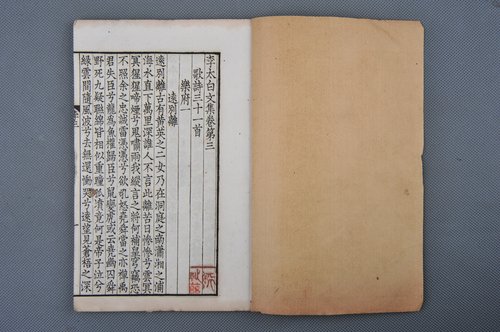 李太白文集卷第三
歌詩三十一首
樂府一
遠別離
遠別離古有黄英之二女乃在洞庭之南瀟湘之浦
海水直下萬里深誰人不言此離苦日慘慘兮雲冥
冥猩猩啼煙兮鬼嘯雨我縱言之將何補皇穹竊恐
不照余之忠誠雷憑憑兮欲吼怒堯舜當之亦禪禹
君失臣兮龍為魚權歸臣兮鼠變虎或云堯幽囚舜
野死九疑聯綿皆相似重瞳孤墳竟何是帝子泣兮
緑雲間隨風波兮去無還慟哭兮遠望見蒼梧之深